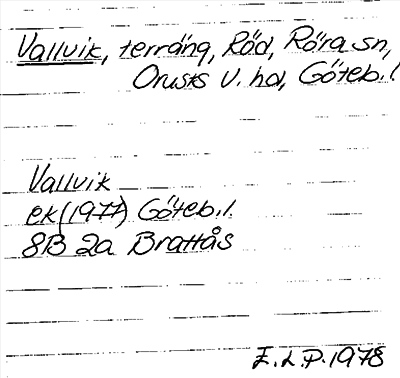 Vallvik, terräng, Röd, Röra sn,
Orusts V. hd, Göteb.l.
Vallvik
ek (1977) Göteb.l.
8B 2a Brattås
E.L.P. 1978